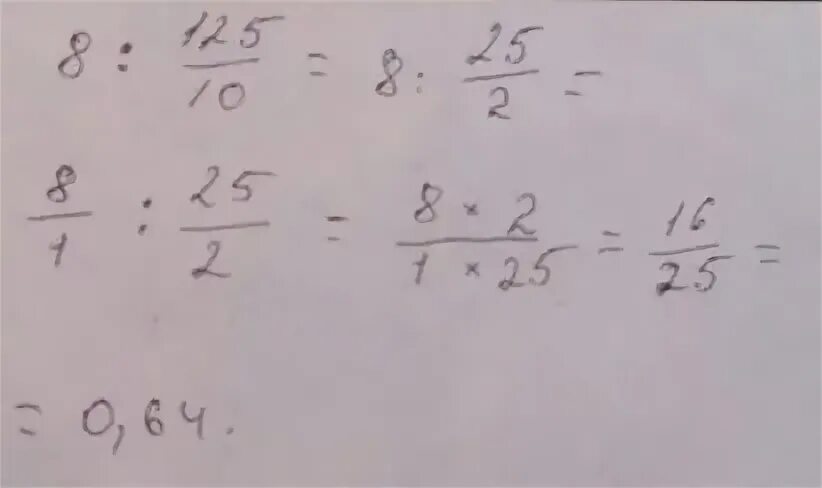 8 : 125/10 = 8 : 25/2 =
8/1 : 25/2 = 8 × 2/1 × 25 = 16/25 =
= 0,64.